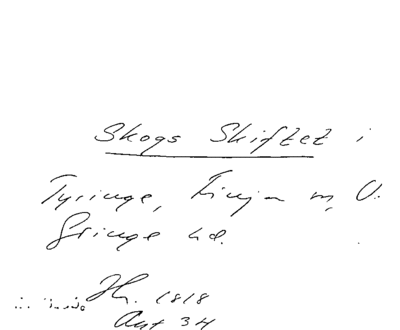 Skogs Skiftet i
Tyringe, Finja m, V.
Göinge hd.
1818
Akt 34